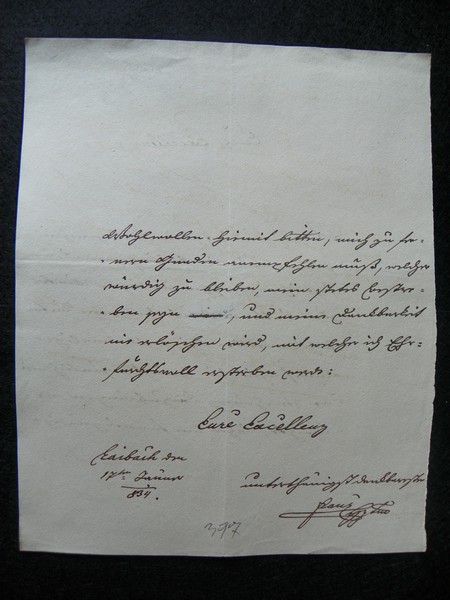 Wohlwollen hiemit bitten, mich zu fe-
rnern Gnaden anempfehlen muß, welcher
würdig zu bleiben, mein stetes Bestre-
ben seyn, und meine Dankbarkeit
nie erlöschen wird, mit welcher ich Ehr-
furchtsvoll ersterben werde:
Eure Excellenz
Laibach den
17ten Jänner
834.
unterthänigst dankbarster
Franz